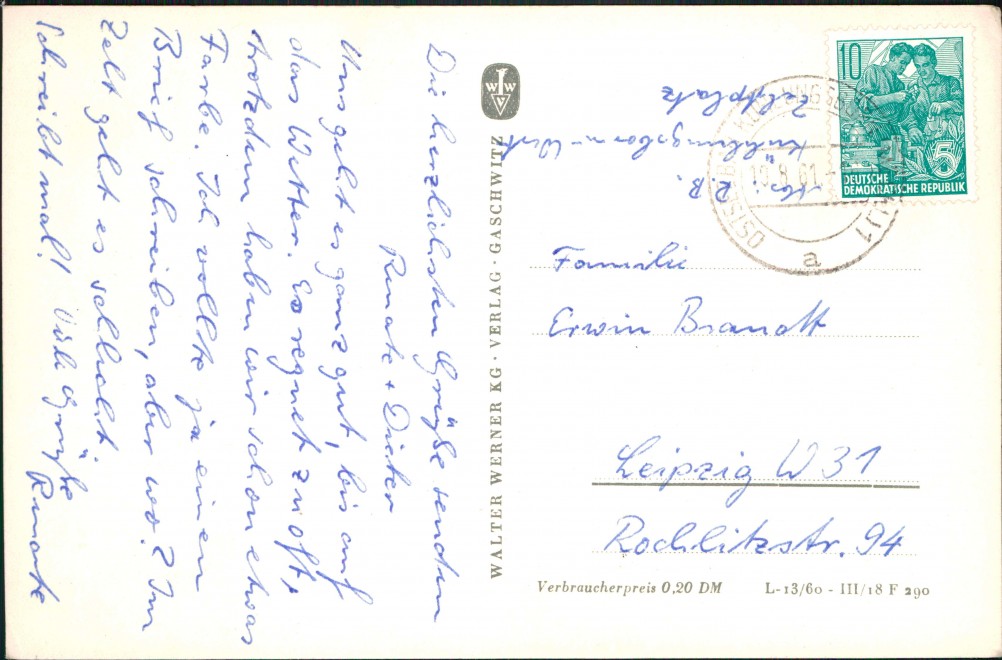 Die herzlichsten Grüße senden
Renate + Dieter
Uns geht es ganz gut, bis auf
das Wetter. Es regnet zu oft,
trotzdem haben wir schon etwas
Farbe. Ich wollte ja einen
Brief schreiben, aber wo? Im
Zelt geht es schlecht.
Schreibt mal! Viele Grüße
Renate
WALTER WERNER KG · VERLAG · GASCHWITZ
W W
V
R. B.
Kühlungsborn-West
Zeltplatz
10
5
DEUTSCHE
DEMOKRATISCHE REPUBLIK
OSTSEEBAD KÜHLUNGSBORN 1
8.61
a
Familie
Erwin Brandt
Leipzig W 31
Rochlitzstr. 94
Verbraucherpreis 0,20 DM
L-13/60 - III/18 F 290